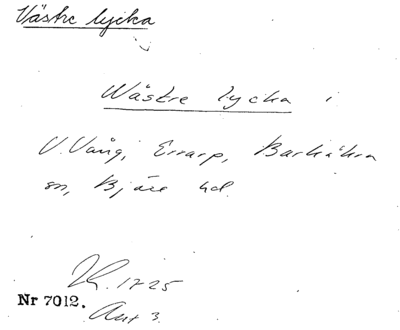 Västre lycka
Wästre lycka i
V. Vång, Errarp, Barkåkra
sn, Bjäre hd.
LK. 1725
Nr 7012.
Akt 3.